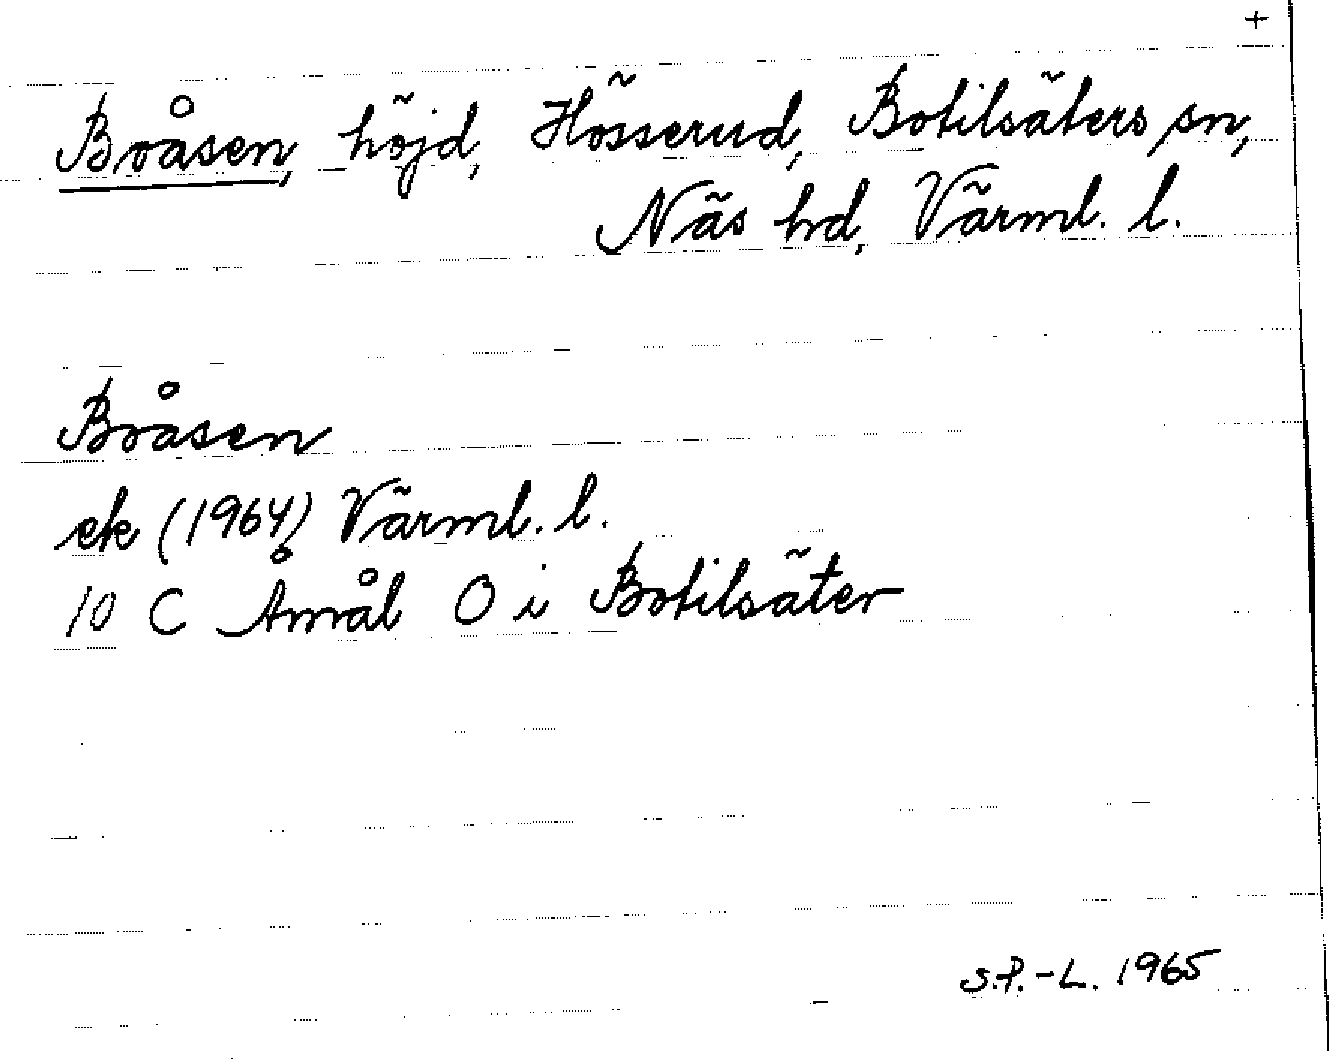 +
Bråsen, höjd, Hösserud, Botilsäters sn,
Näs hd, Värml. l.
Bråsen
ek (1964) Värml. l.
10 C Åmål O i Botilsäter
S.P.-L. 1965